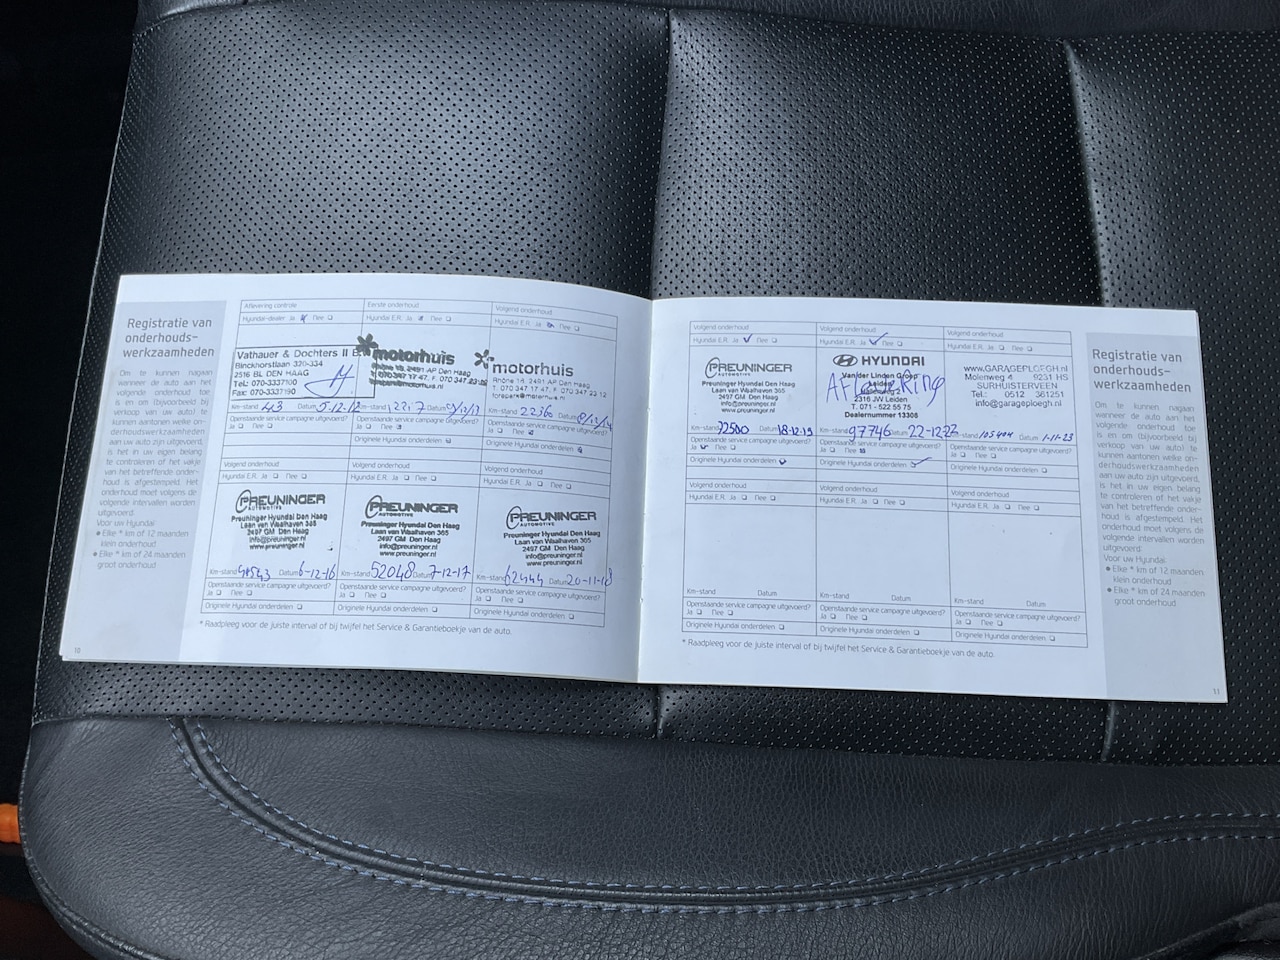 Registratie van
onderhouds-
werkzaamheden
Om te kunnen nagaan
wanneer de auto aan het
volgende onderhoud toe
is en om (bijvoorbeeld bij
verkoop van uw auto) te
kunnen aantonen welke on-
derhoudswerkzaamheden
aan uw auto zijn uitgevoerd,
is het in uw eigen belang
te controleren of het vakje
van het betreffende onder-
houd is afgestempeld. Het
onderhoud moet volgens de
volgende intervallen worden
uitgevoerd:
Voor uw Hyundai:
• Elke * km of 12 maanden
klein onderhoud
• Elke * km of 24 maanden
groot onderhoud
10
Aflevering controle
Hyundai-dealer Ja Nee
Vathauer & Dochters II B.
Binckhorstlaan 320-334
2516 BL DEN HAAG
Tel.: 070-3337100
Fax: 070-3337190
Km-stand 43 Datum 5-12-12
Openstaande service campagne uitgevoerd?
Ja Nee
Eerste onderhoud
Hyundai E.R. Ja Nee
motorhuis
Rhône 16, 2491 AP Den Haag
T. 070 347 17 47, F. 070 347 23 12
Km-stand Datum
Openstaande service campagne uitgevoerd?
Ja Nee
Originele Hyundai onderdelen
Volgend onderhoud
Hyundai E.R. Ja Nee
motorhuis
Rhône 16, 2491 AP Den Haag
T. 070 347 17 47, F. 070 347 23 12
forepark@motorhuis.nl
Km-stand Datum
Openstaande service campagne uitgevoerd?
Ja Nee
Originele Hyundai onderdelen
Volgend onderhoud
Hyundai E.R. Ja Nee
PREUNINGER
AUTOMOTIVE
Preuninger Hyundai Den Haag
Laan van Waalhaven 365
2497 GM Den Haag
info@preuninger.nl
www.preuninger.nl
Km-stand Datum 6-12-16
Openstaande service campagne uitgevoerd?
Ja Nee
Originele Hyundai onderdelen
Volgend onderhoud
Hyundai E.R. Ja Nee
PREUNINGER
AUTOMOTIVE
Preuninger Hyundai Den Haag
Laan van Waalhaven 365
2497 GM Den Haag
info@preuninger.nl
www.preuninger.nl
Km-stand 52048 Datum 7-12-17
Openstaande service campagne uitgevoerd?
Ja Nee
Originele Hyundai onderdelen
Volgend onderhoud
Hyundai E.R. Ja Nee
PREUNINGER
AUTOMOTIVE
Preuninger Hyundai Den Haag
Laan van Waalhaven 365
2497 GM Den Haag
info@preuninger.nl
www.preuninger.nl
Km-stand 62444 Datum 20-11-18
Openstaande service campagne uitgevoerd?
Ja Nee
Originele Hyundai onderdelen
* Raadpleeg voor de juiste interval of bij twijfel het Service & Garantieboekje van de auto.
Volgend onderhoud
Hyundai E.R. Ja Nee
PREUNINGER
AUTOMOTIVE
Preuninger Hyundai Den Haag
Laan van Waalhaven 365
2497 GM Den Haag
info@preuninger.nl
www.preuninger.nl
Km-stand 72500 Datum 18-12-19
Openstaande service campagne uitgevoerd?
Ja Nee
Originele Hyundai onderdelen
Volgend onderhoud
Hyundai E.R. Ja Nee
HYUNDAI
Van der Linden Groep
Leiden
2316 JW Leiden
T. 071 - 522 55 75
Dealernummer 13308
Km-stand 97746 Datum 22-12-22
Openstaande service campagne uitgevoerd?
Ja Nee
Originele Hyundai onderdelen
Volgend onderhoud
Hyundai E.R. Ja Nee
www.GARAGEPLOEGH.nl
Molenweg 4 9231 HS
SURHUISTERVEEN
Tel.: 0512 361251
info@garageploegh.nl
Km-stand 105404 Datum 1-11-23
Openstaande service campagne uitgevoerd?
Ja Nee
Originele Hyundai onderdelen
Volgend onderhoud
Hyundai E.R. Ja Nee
Km-stand Datum
Openstaande service campagne uitgevoerd?
Ja Nee
Originele Hyundai onderdelen
Volgend onderhoud
Hyundai E.R. Ja Nee
Km-stand Datum
Openstaande service campagne uitgevoerd?
Ja Nee
Originele Hyundai onderdelen
Volgend onderhoud
Hyundai E.R. Ja Nee
Km-stand Datum
Openstaande service campagne uitgevoerd?
Ja Nee
Originele Hyundai onderdelen
* Raadpleeg voor de juiste interval of bij twijfel het Service & Garantieboekje van de auto.
Registratie van
onderhouds-
werkzaamheden
Om te kunnen nagaan
wanneer de auto aan het
volgende onderhoud toe
is en om (bijvoorbeeld bij
verkoop van uw auto) te
kunnen aantonen welke on-
derhoudswerkzaamheden
aan uw auto zijn uitgevoerd,
is het in uw eigen belang
te controleren of het vakje
van het betreffende onder-
houd is afgestempeld. Het
onderhoud moet volgens de
volgende intervallen worden
uitgevoerd:
Voor uw Hyundai:
• Elke * km of 12 maanden
klein onderhoud
• Elke * km of 24 maanden
groot onderhoud
11